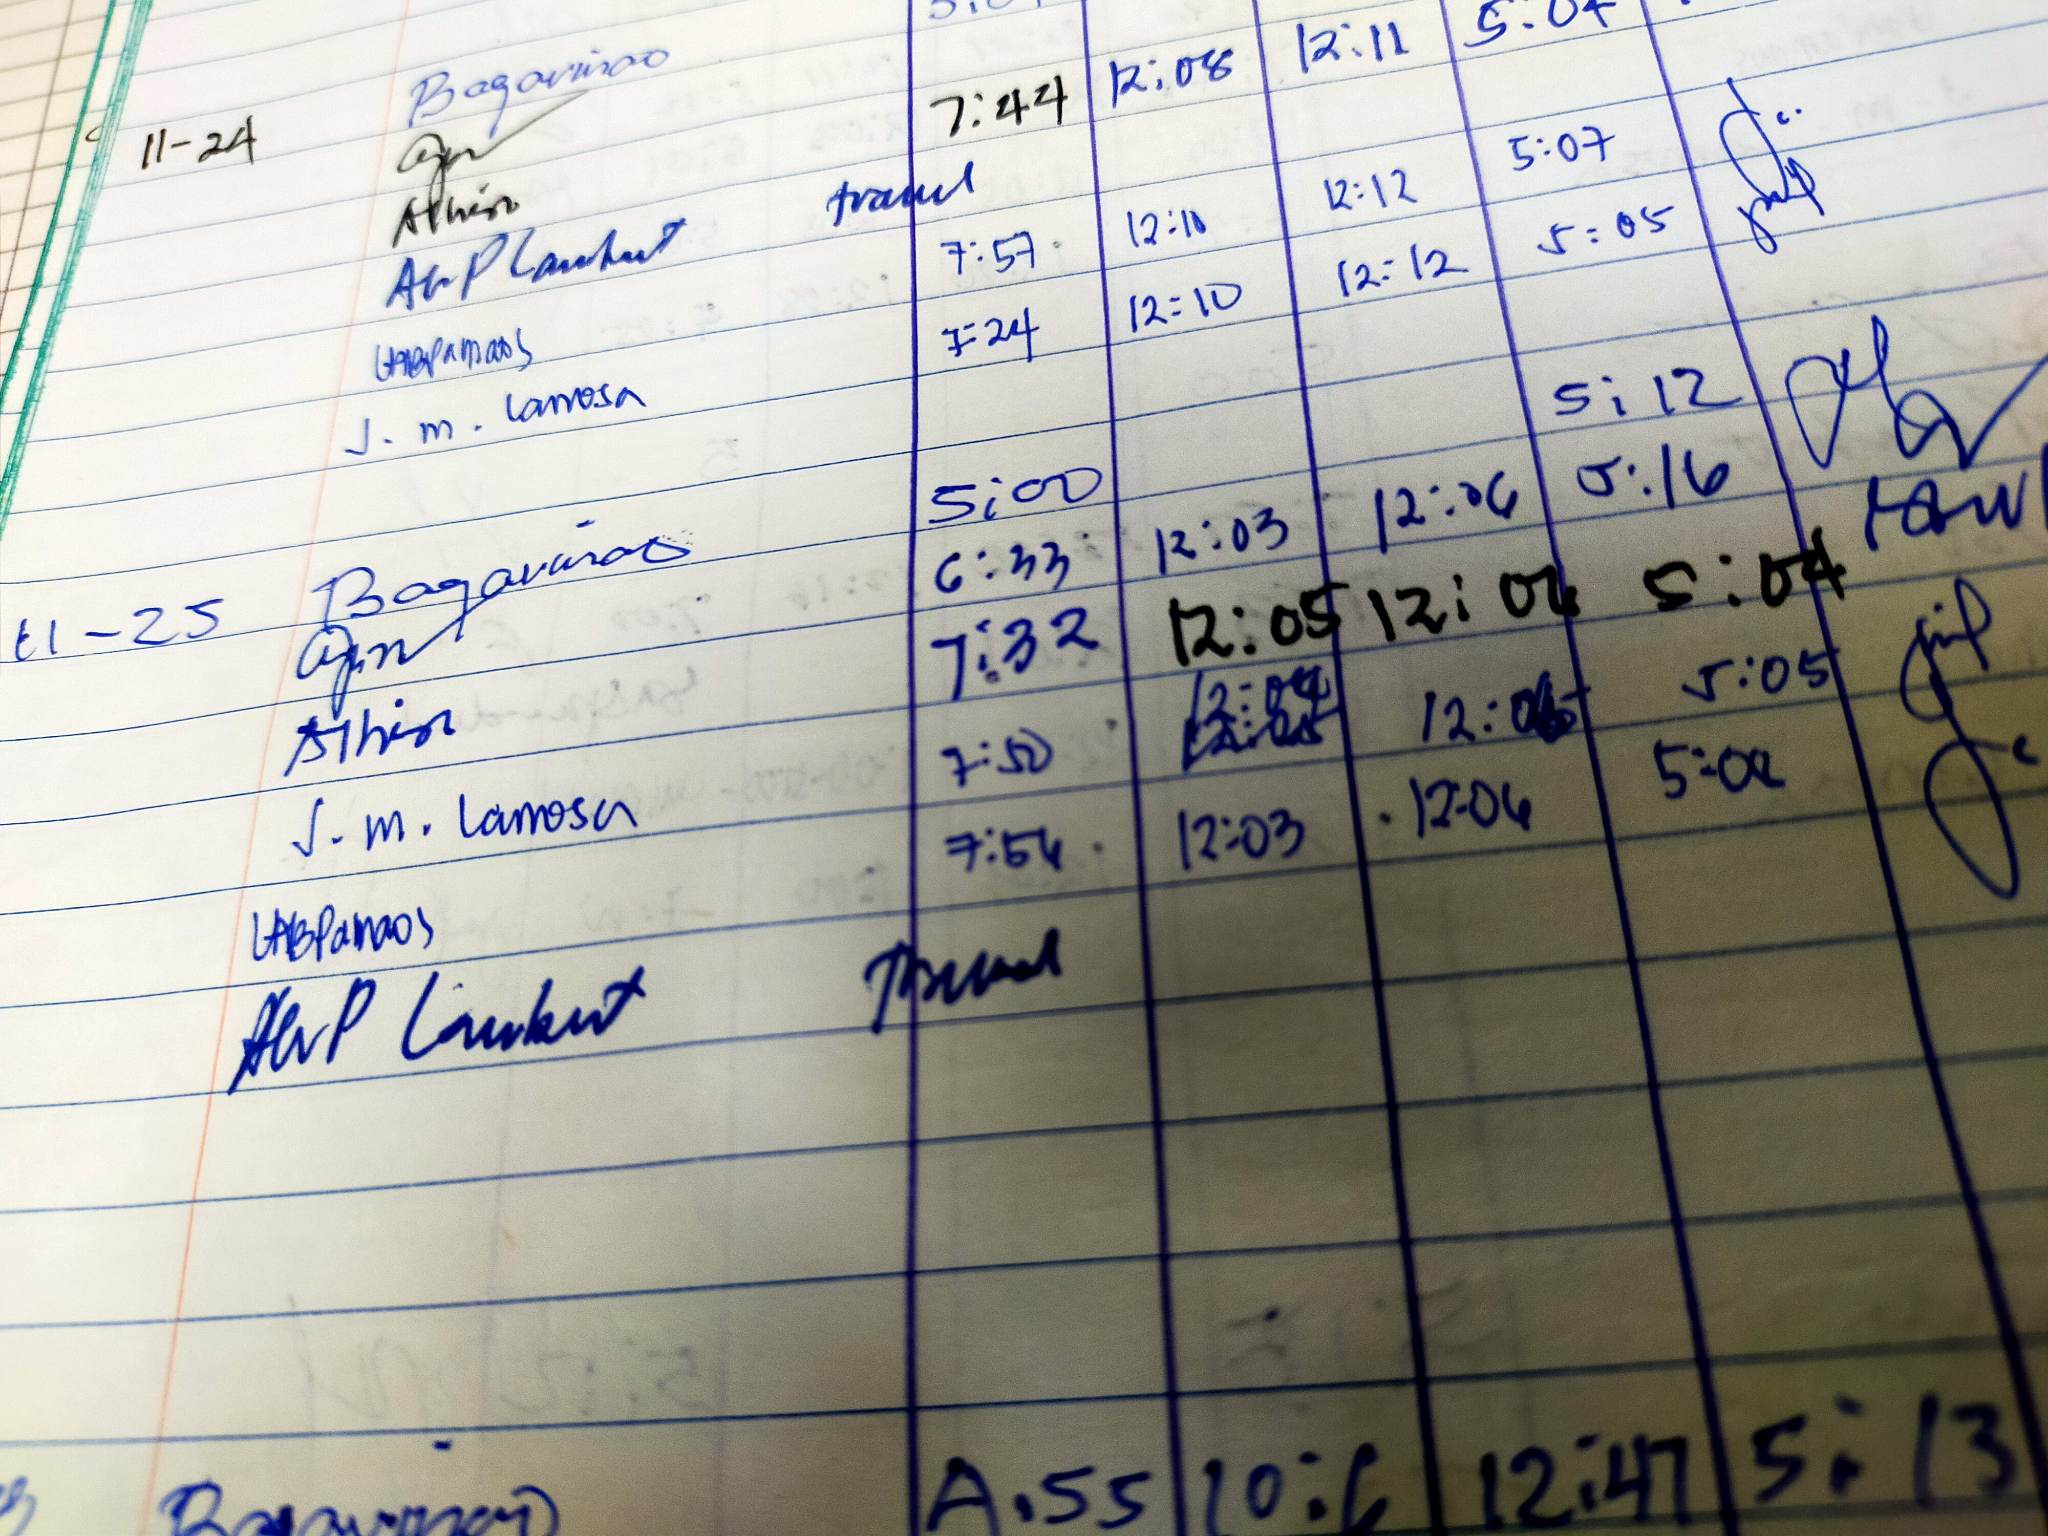 11-24 Bagaviñao
7:44 12:08 12:11 5:04
Athien travel
Alv P Lambert 7:57 12:10 12:12 5:07
LABPamaos 7:24 12:10 12:12 5:05
J. m. Lamosa
11-25 Bagaviñao 5:00 5:12
6:33 12:03 12:06 5:16
Athien 7:32 12:05 12:06 5:04
J. m. Lamosa 7:50 12:04 5:05
LABPamaos 7:54 12:03 12:06 5:02
Alv P Lambert Travel
Bagaviñao A:55 10:6 12:47 5:13